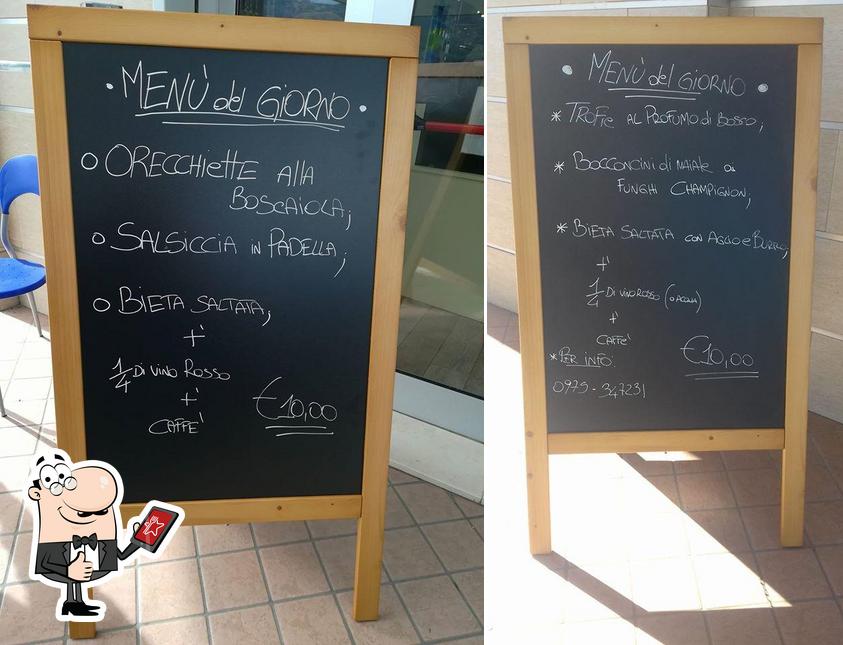 • MENÙ del GIORNO •
o ORECCHIETTE ALLA
BOSCAIOLA;
o SALSICCIA IN PADELLA;
o BIETA SALTATA;
+
1/4 DI VINO ROSSO
+
CAFFE'
€10,00
• MENÙ del GIORNO •
* TROFIE AL PROFUMO di BOSCO;
* BOCCONCINI di MAIALE ai
FUNGHI CHAMPIGNON;
* BIETA SALTATA CON AGLIO e BURRO;
+
1/4 DI VINO ROSSO (o ACQUA)
+
CAFFE'
€10,00
* PER INFO:
0975-347231